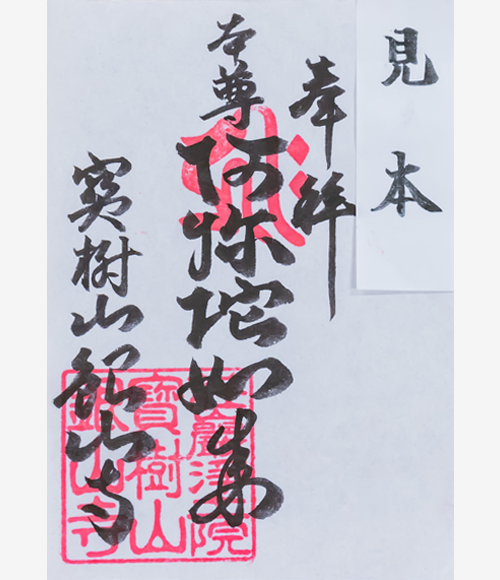 見本
奉拝
本尊
阿弥陀如来
寳樹山銀山寺
寶樹山
銀山寺